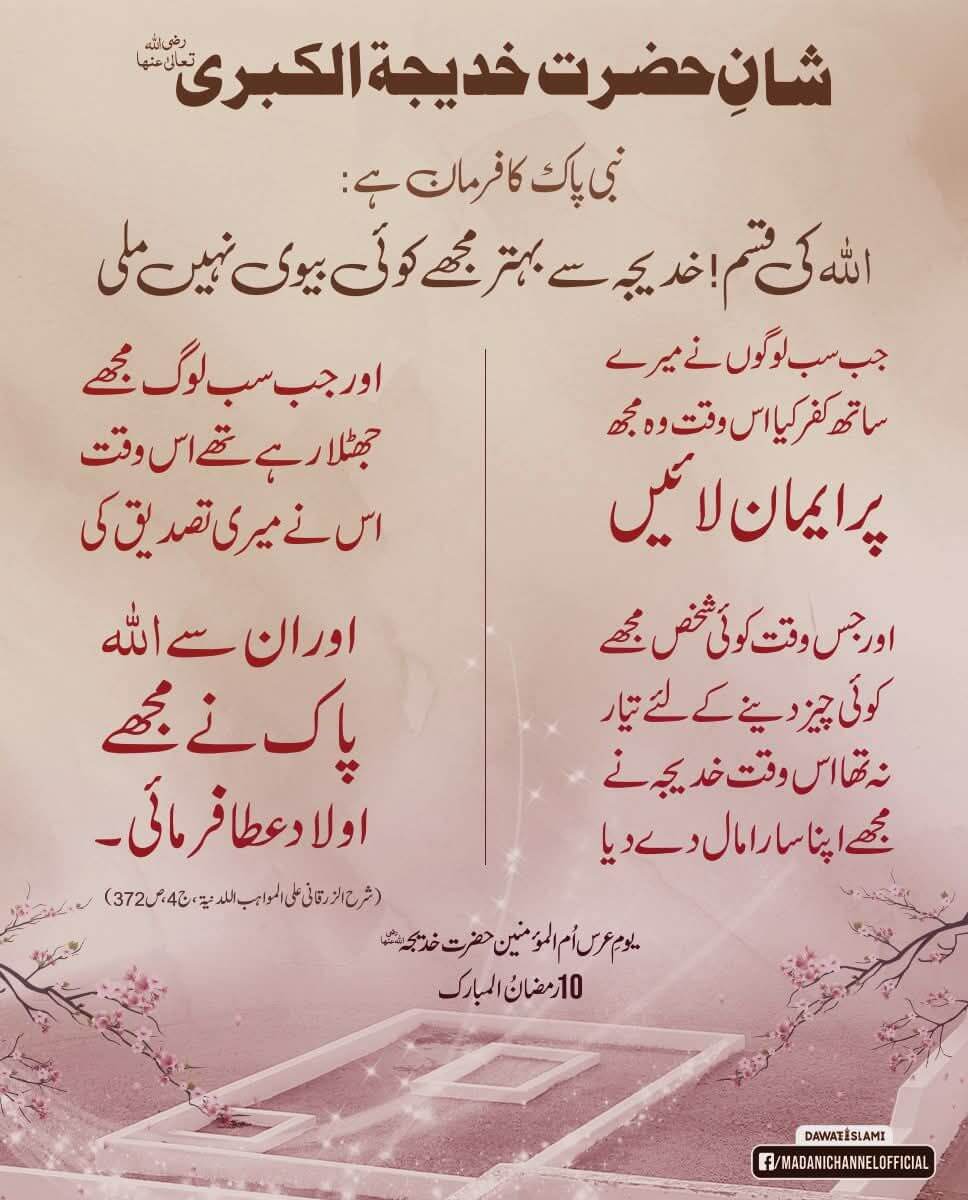 شانِ حضرت خدیجۃ الکبریٰ رضی اللہ تعالیٰ عنہا
نبی پاک کا فرمان ہے:
اللہ کی قسم! خدیجہ سے بہتر مجھے کوئی بیوی نہیں ملی
جب سب لوگوں نے میرے
ساتھ کفر کیا اس وقت وہ مجھ
پر ایمان لائیں
اور جب سب لوگ مجھے
جھٹلا رہے تھے اس وقت
اس نے میری تصدیق کی
اور جس وقت کوئی شخص مجھے
کوئی چیز دینے کے لئے تیار
نہ تھا اس وقت خدیجہ نے
مجھے اپنا سارا مال دے دیا
اور ان سے اللہ
پاک نے مجھے
اولاد عطا فرمائی۔
(شرح الزرقانی علی المواہب اللدنیۃ، ج4، ص372)
یومِ عرس اُم المؤمنین حضرت خدیجہ رضی اللہ عنہا
10 رمضانُ المبارک
DAWATEISLAMI
f/MADANICHANNELOFFICIAL